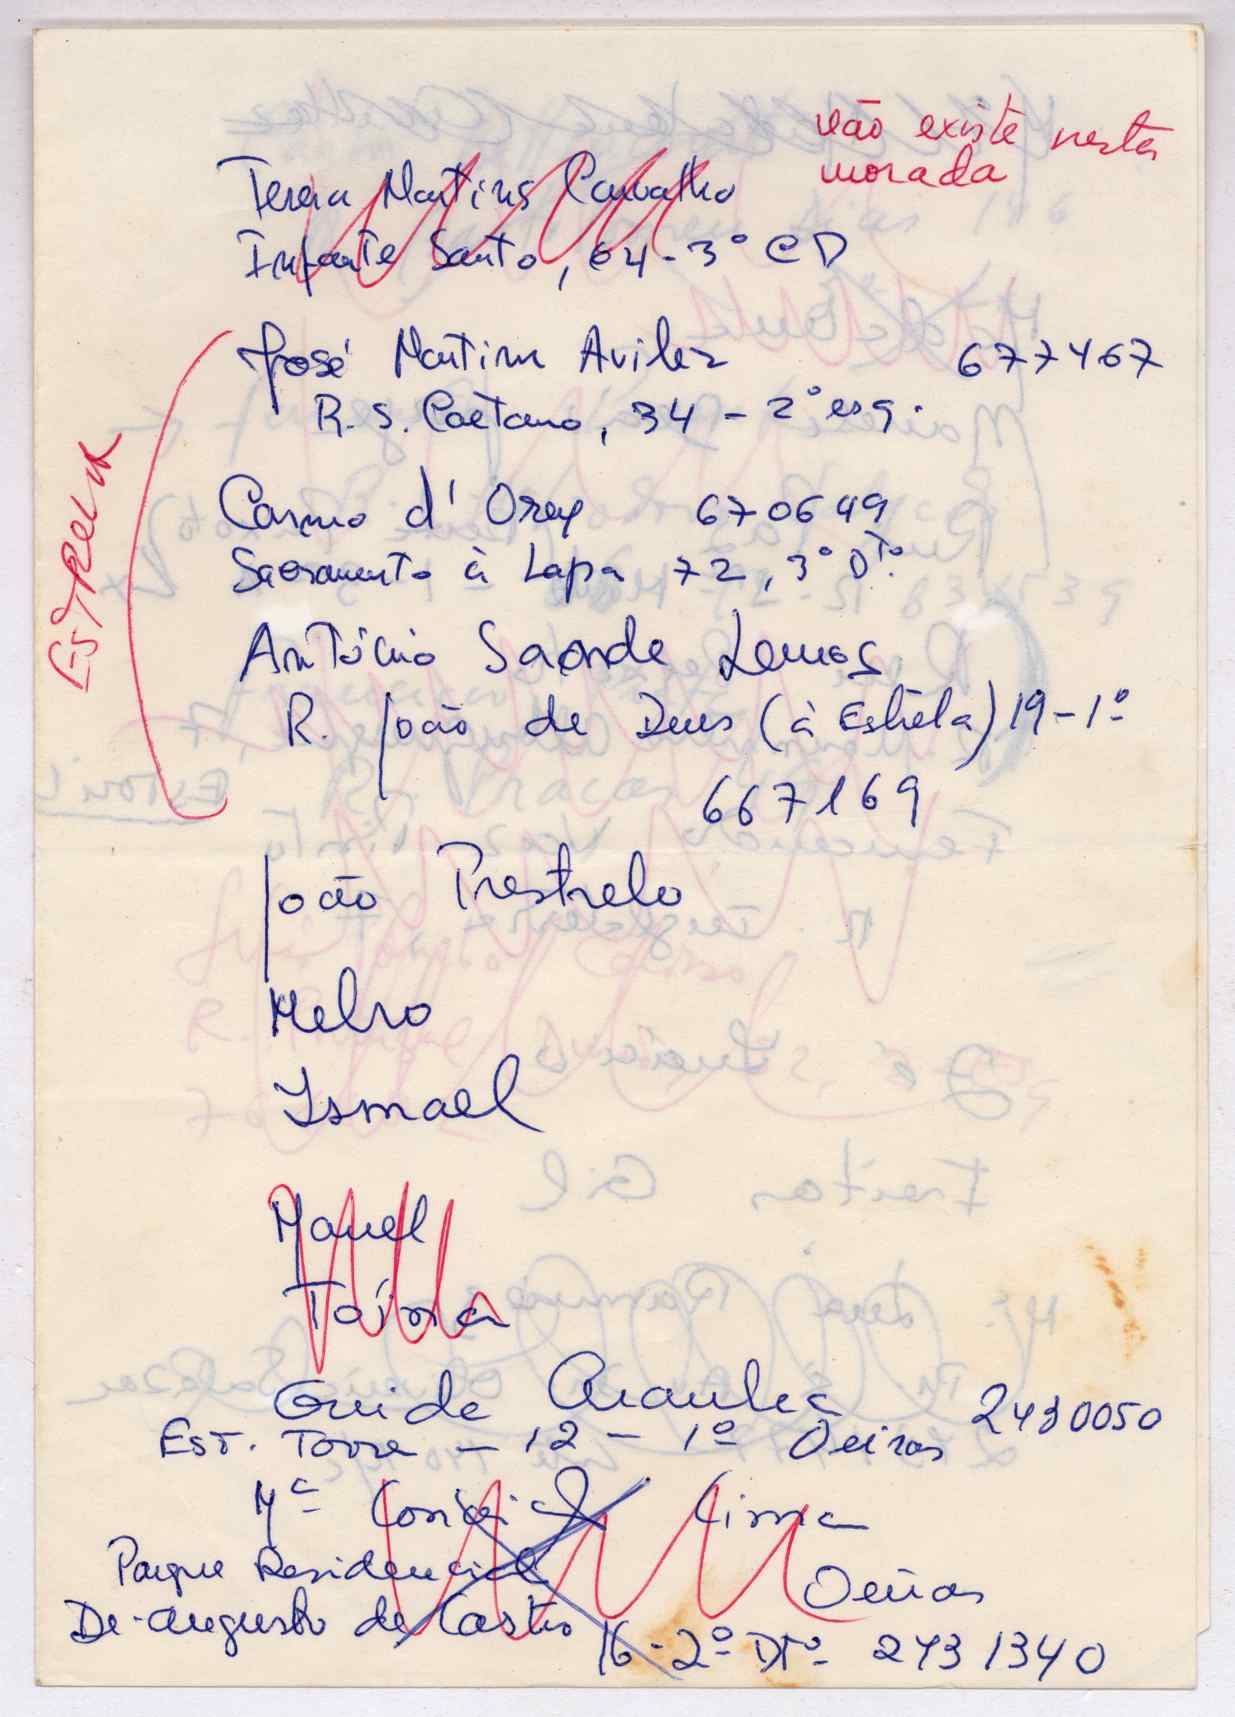 não existe nesta
morada
Teresa Martins Carvalho
Infante Santo, 64-3º CD
José Martim Avilez 677467
R. S. Caetano, 34 - 2º esq.
ESTRELA
Carmo d' Orey 670649
Sacramento à Lapa 72, 3º Dtº
António Saonde Lemos
R. João de Deus (à Estrêla) 19-1º
667169
João Prestrelo
Melro
Ismael
Manel
Toíma
Guida 2430050
Est. Torre - 12 - 1º Oeiras
Mª Lima
Parque Residencial Oeiras
Dr. Augusto de Castro 16-2º Dtº 2431340